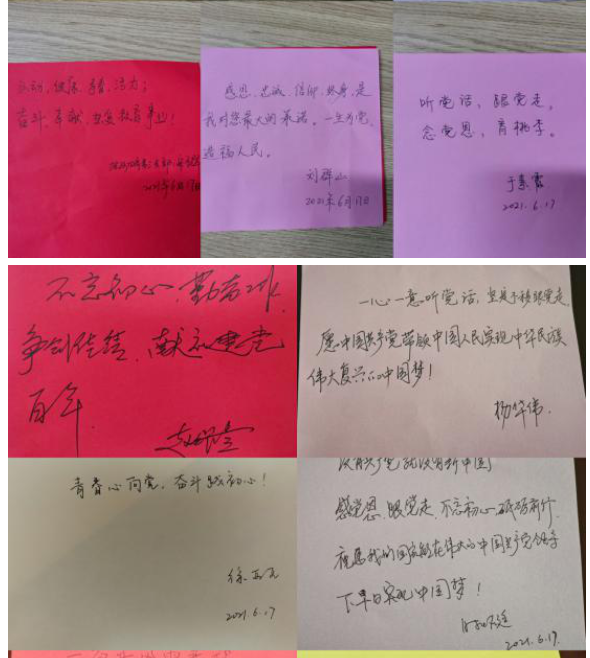 奋斗、奉献，热爱教育事业！
2021年6月17日
感恩、忠诚、信仰、终身，是
我对您最大的承诺。一生为党，
造福人民。
刘群山
2021年6月17日
听党话，跟党走，
念党恩，育桃李。
2021.6.17
不忘初心、勤奋工作、
争创佳绩、献礼建党
百年
一心一意听党话，坚定不移跟党走，
愿中国共产党带领中国人民实现中华民族
伟大复兴的中国梦！
杨华伟
青春心向党，奋斗践初心！
2021.6.17
没有共产党就没有新中国
感党恩、跟党走、不忘初心、砥砺前行，
祝愿我的国家能在伟大的中国共产党领导
下早日实现中国梦！
2021.6.17